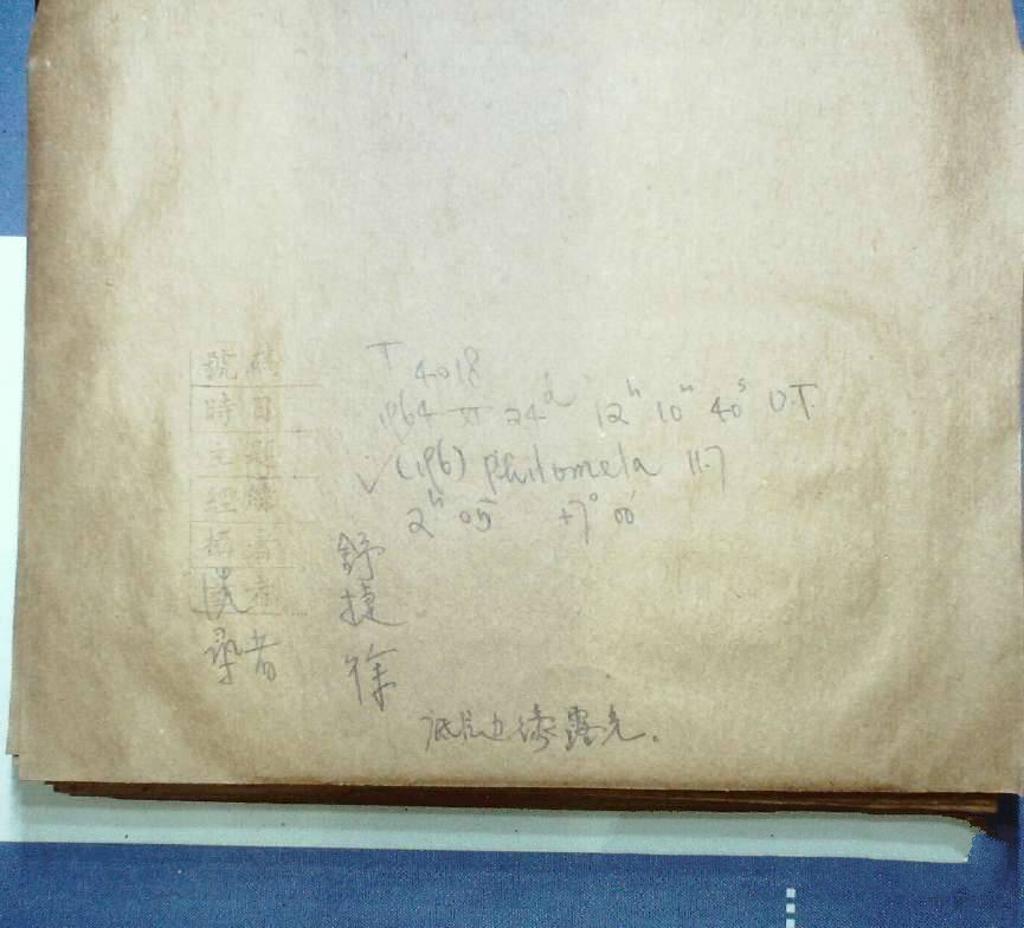 號碼 T 4018
時日 1964 XI 24d 12h 10m 40s U.T.
(196) Philomela 11.7
經緯 2h 05 +7° 00'
舒
捷
录者 徐
底片边缘露光.